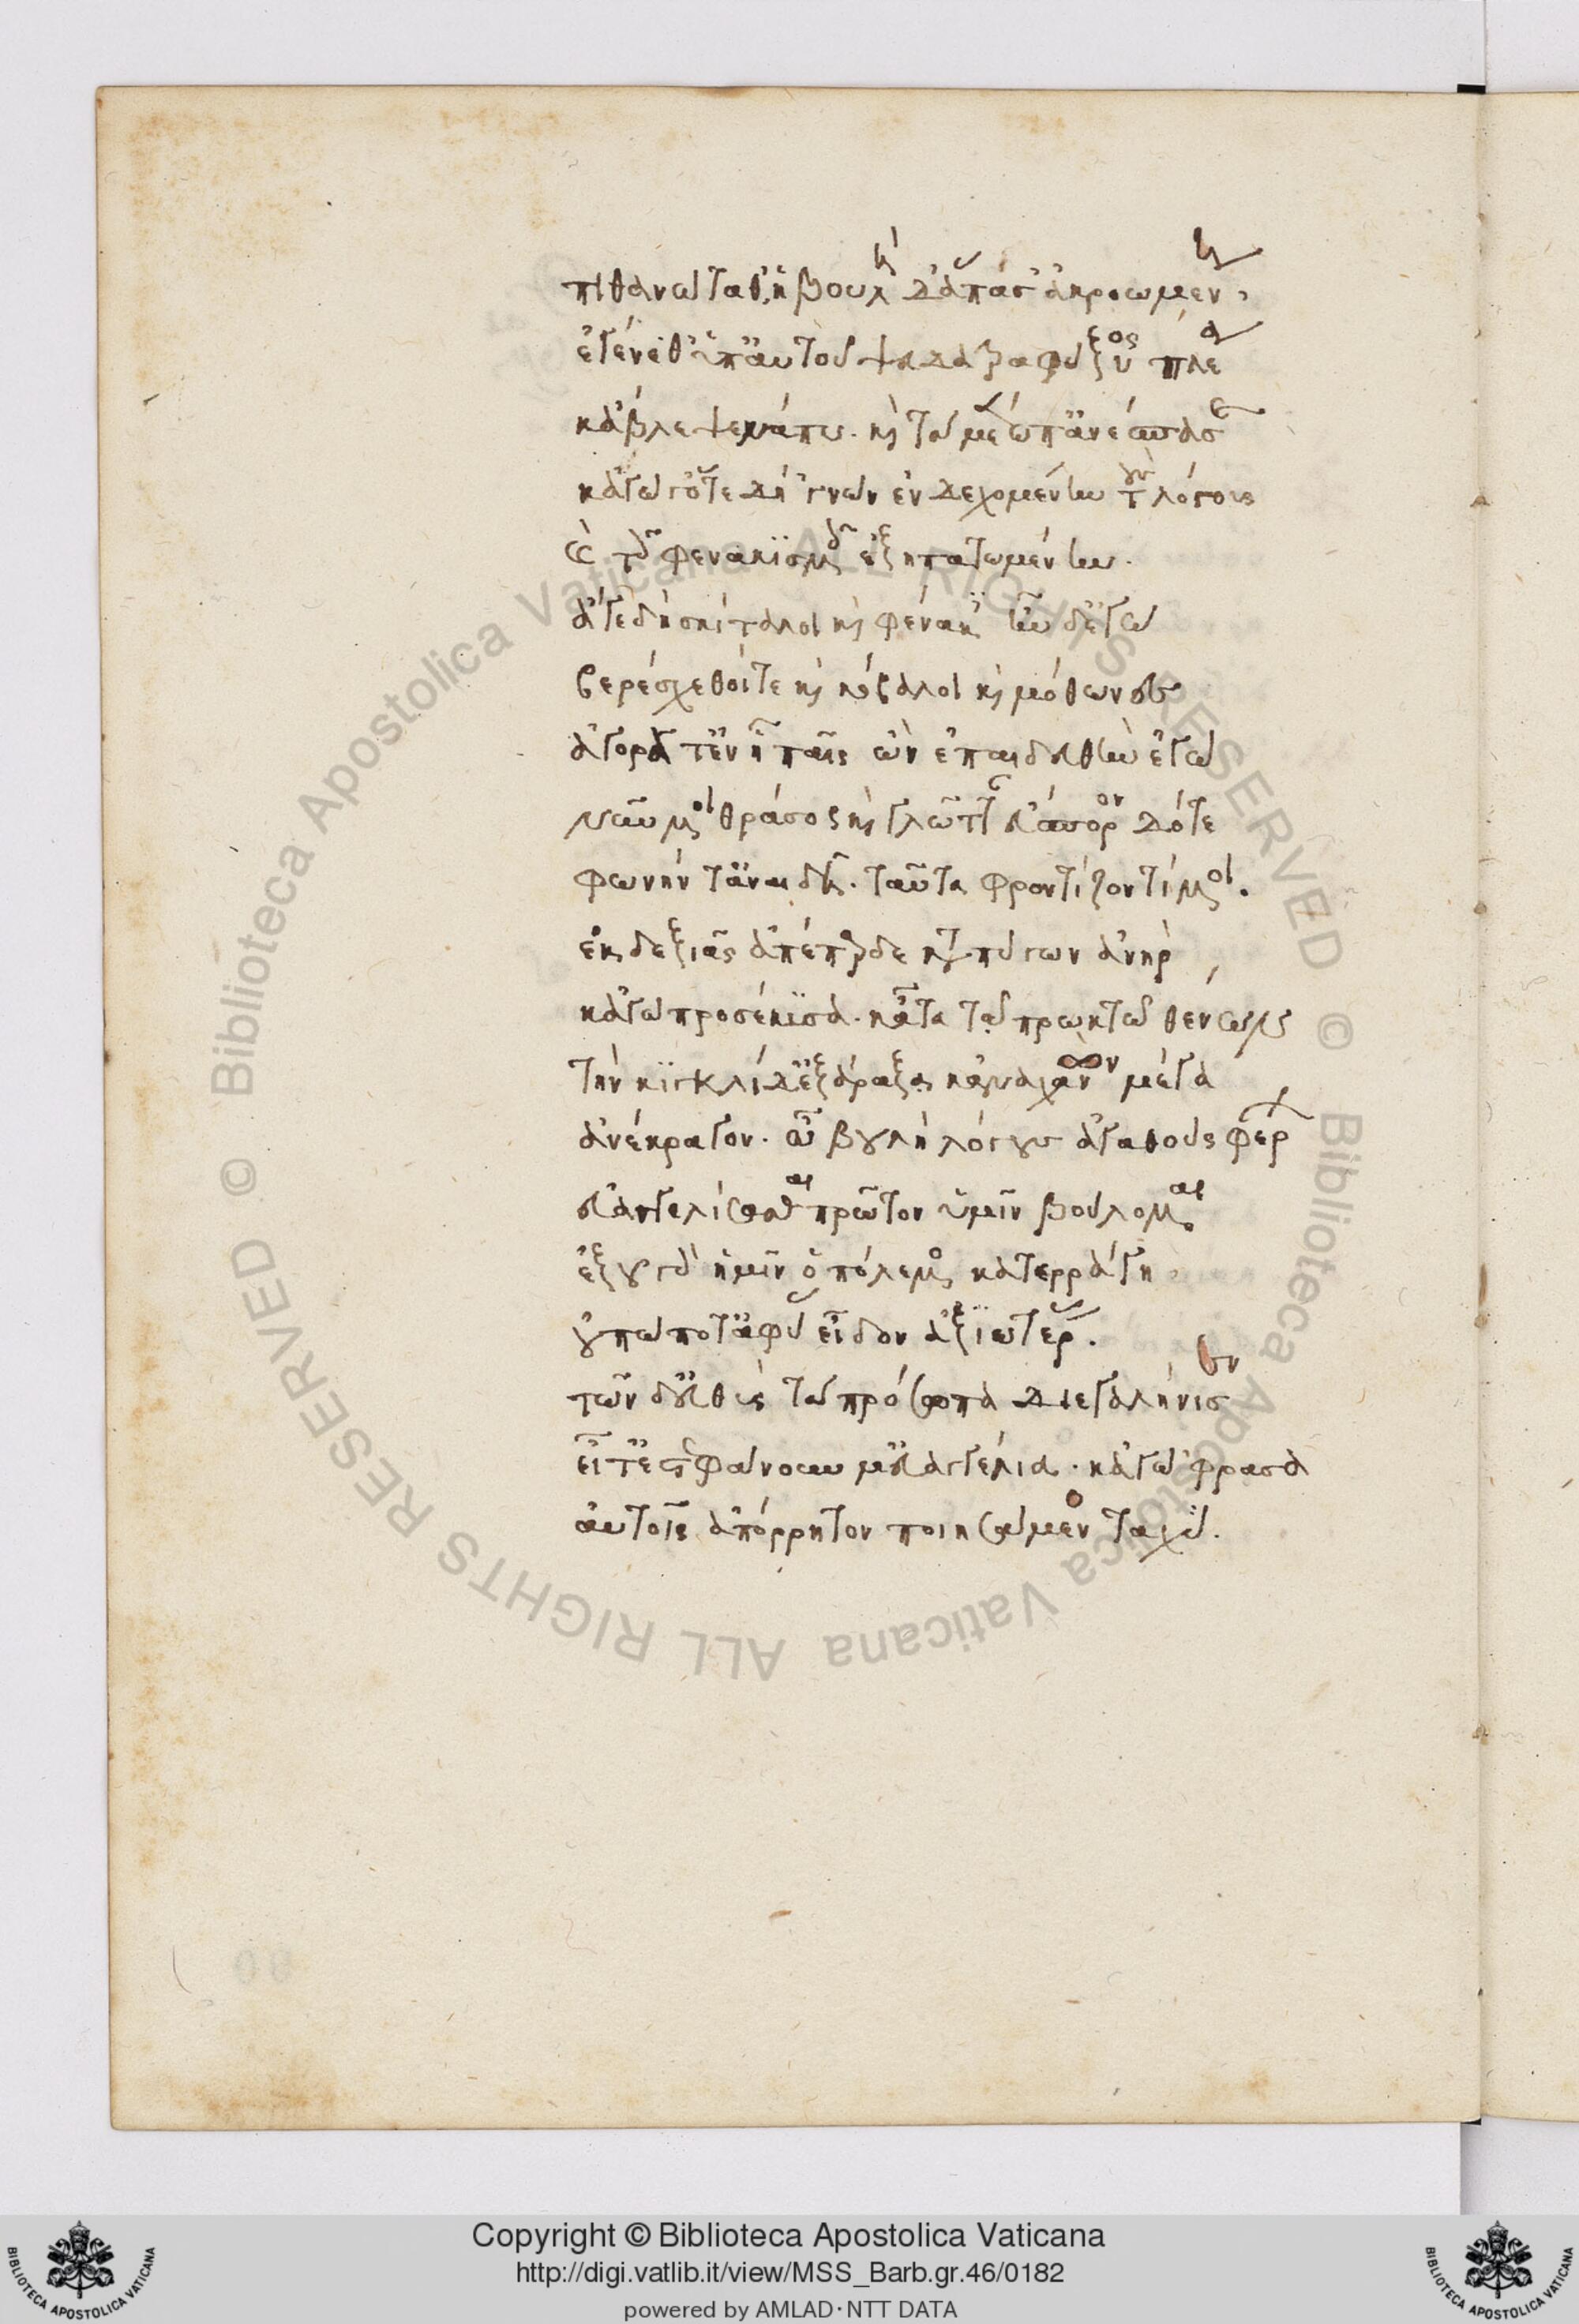 πιθανώταθ', ἡ βουλὴ δ' ἅπασ' ἀκροωμένη
ἐγένεθ' ὑπ' αὐτοῦ ψευδατραφάξυος πλέα
κἄβλεψε νάπυ. καὶ τὰ μέτωπ' ἀνέσπασε
κἄγωγ' ὅτε δὴ 'γνων ἐνδεχομένην τοὺς λόγους
καὶ τοῖς φενακισμοῖς ἐξηπατωμένην.
ἄγε δὴ σκίταλοι καὶ φένακες ἦν δ' ἐγὼ
βερέσχεθοί τε καὶ κόβαλοι καὶ μόθων
ἀγορά τ' ἐν ᾗ παῖς ὢν ἐπαιδεύθην ἐγὼ
νῦν μοι θράσος καὶ γλῶτταν εὔπορον δότε
φωνήν τ' ἀναιδῆ. ταῦτα φροντίζοντί μοι.
ἐκ δεξιᾶς ἀπέπαρδε καταπύγων ἀνήρ
κἀγὼ προσέκυσα. κᾆτα τῷ πρωκτῷ θενὼν
τὴν κιγκλίδ' ἐξήραξα κἀναχανὼν μέγα
ἀνέκραγον. ὦ βουλὴ λόγους ἀγαθοὺς φέρων
εὐαγγελίσασθαι πρῶτον ὑμῖν βούλομαι
ἐξ οὗ γὰρ ἡμῖν ὁ πόλεμος κατερράγη
οὐπώποτ' ἀφύας εἶδον ἀξιωτέρας.
τῶν δ' εὐθὺς τὰ πρόσωπα διεγαλήνισεν
εἶτ' ἐστεφάνουν μ' εὐαγγέλια. κἀγὼ 'φρασα
αὐτοῖς ἀπόρρητον ποιησάμενος ταχύ.
Copyright © Biblioteca Apostolica Vaticana
http://digi.vatlib.it/view/MSS_Barb.gr.46/0182
powered by AMLAD·NTT DATA